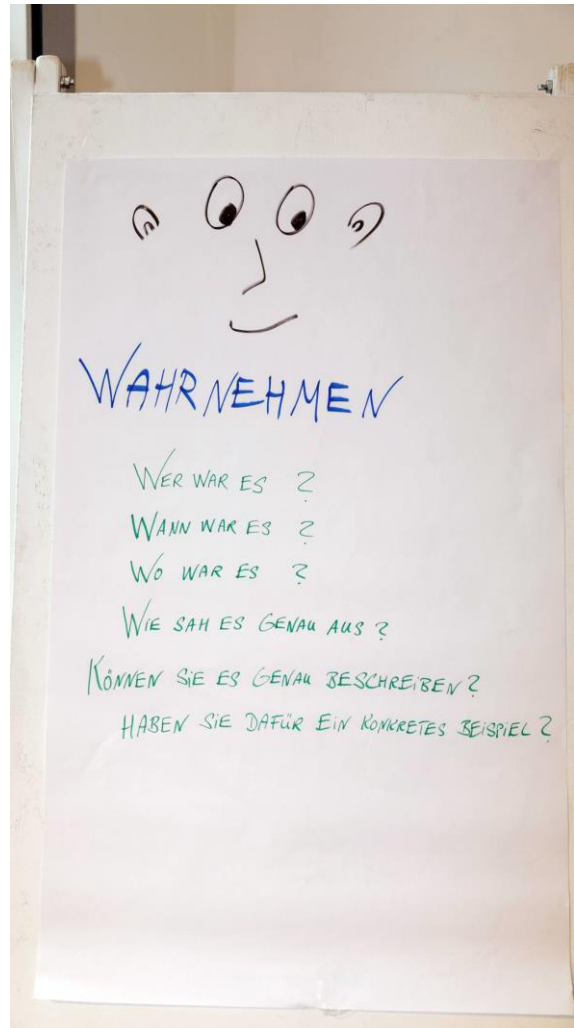 WAHRNEHMEN
WER WAR ES ?
WANN WAR ES ?
WO WAR ES ?
WIE SAH ES GENAU AUS ?
KÖNNEN SIE ES GENAU BESCHREIBEN ?
HABEN SIE DAFÜR EIN KONKRETES BEISPIEL ?